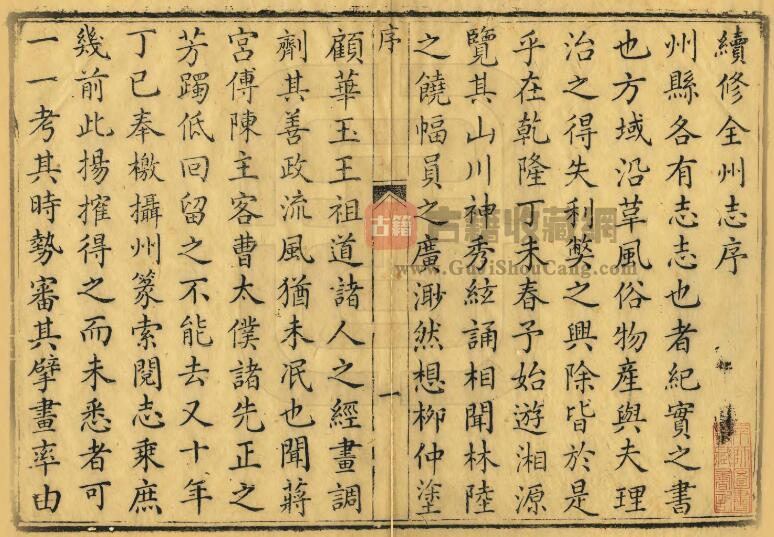 續修全州志序
州縣各有志志也者紀實之書
也方域沿革風俗物產與夫理
治之得失利獘之興除皆於是
乎在乾隆丁未春予始遊湘源
覽其山川神秀絃誦相聞林陸
之饒幅員之廣渺然想柳仲塗
序
一
顧華玉王祖道諸人之經畫調
劑其善政流風猶未泯也聞蔣
宮傅陳主客曹太僕諸先正之
芳躅低回留之不能去又十年
丁巳奉檄攝州篆索閱志乘庶
幾前此揚搉得之而未悉者可
一一考其時勢審其擘畫率由
古籍
古籍收藏網
www.GuJiShouCang.com